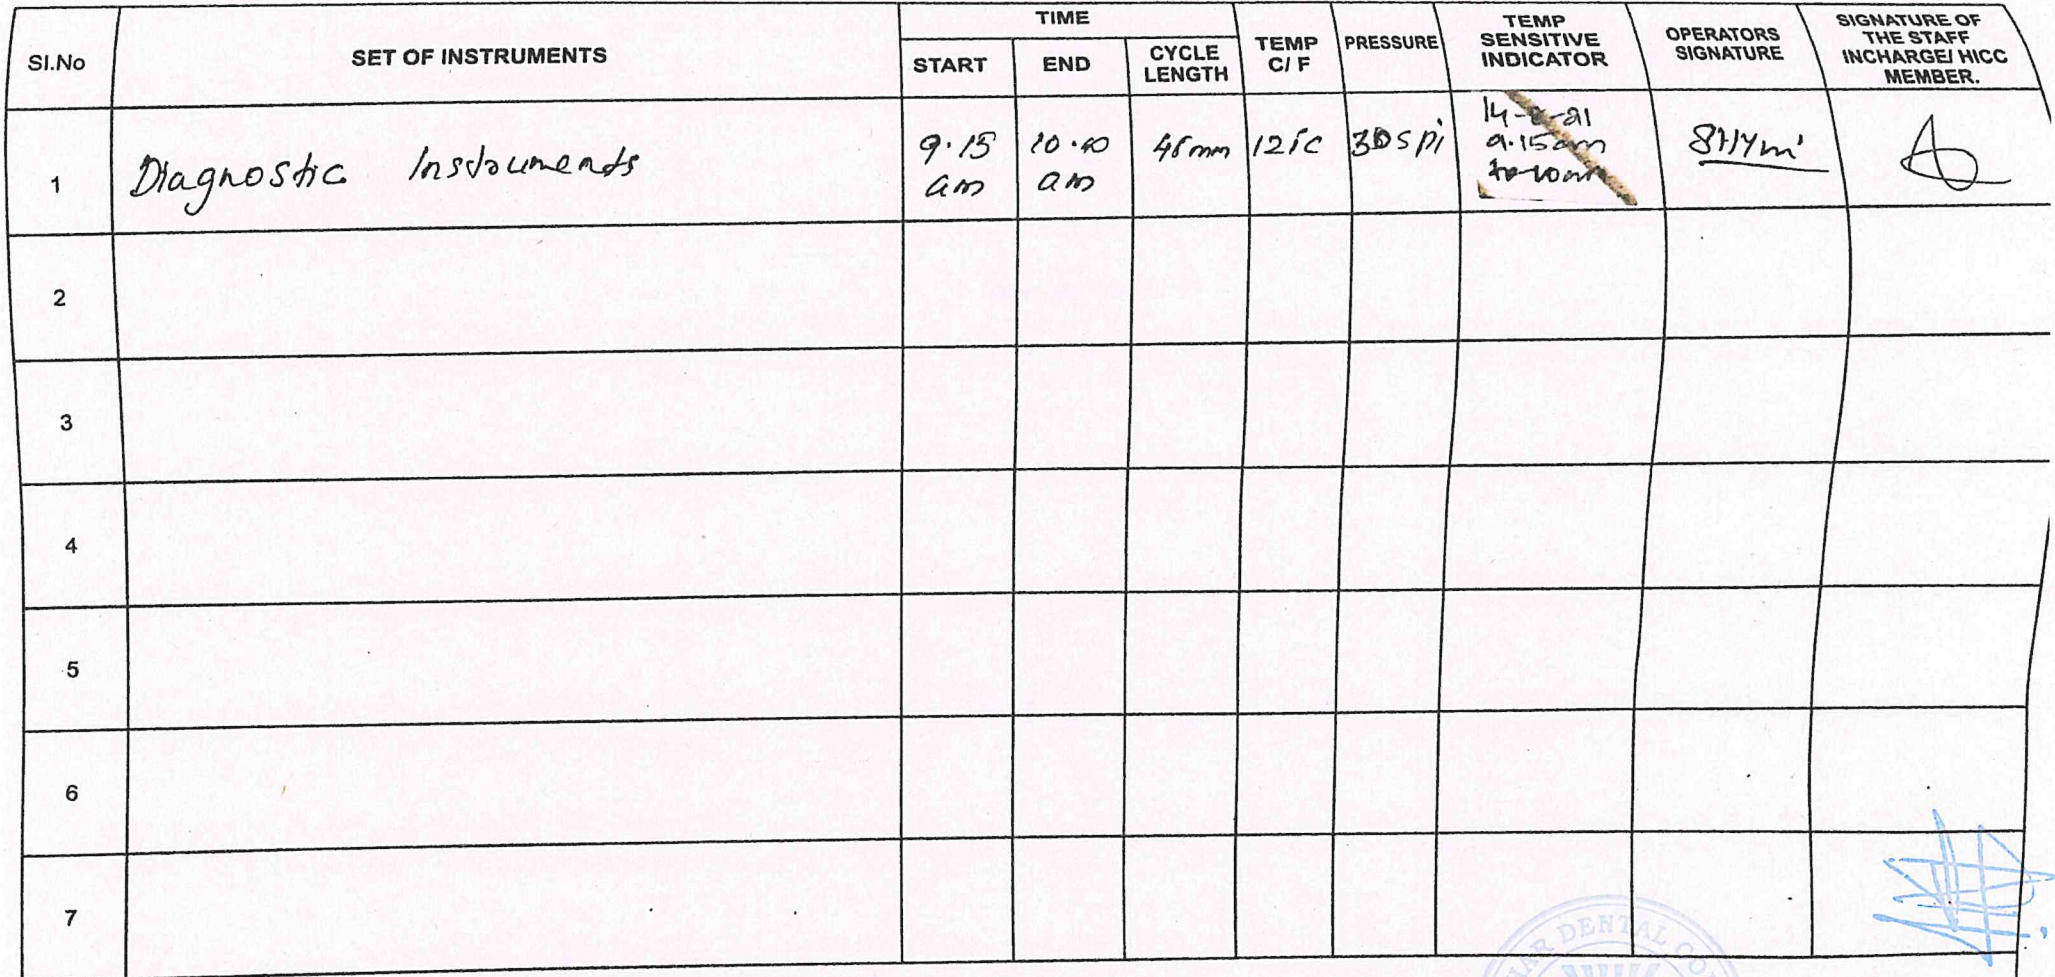 SI.No
SET OF INSTRUMENTS
TIME
START
END
CYCLE
LENGTH
TEMP
C/ F
PRESSURE
TEMP
SENSITIVE
INDICATOR
OPERATORS
SIGNATURE
SIGNATURE OF
THE STAFF
INCHARGE/ HICC
MEMBER.
1
Diagnostic Instruments
9.15
am
10.10
am
30spi
9.15am
2
3
4
5
6
7
DENTAL